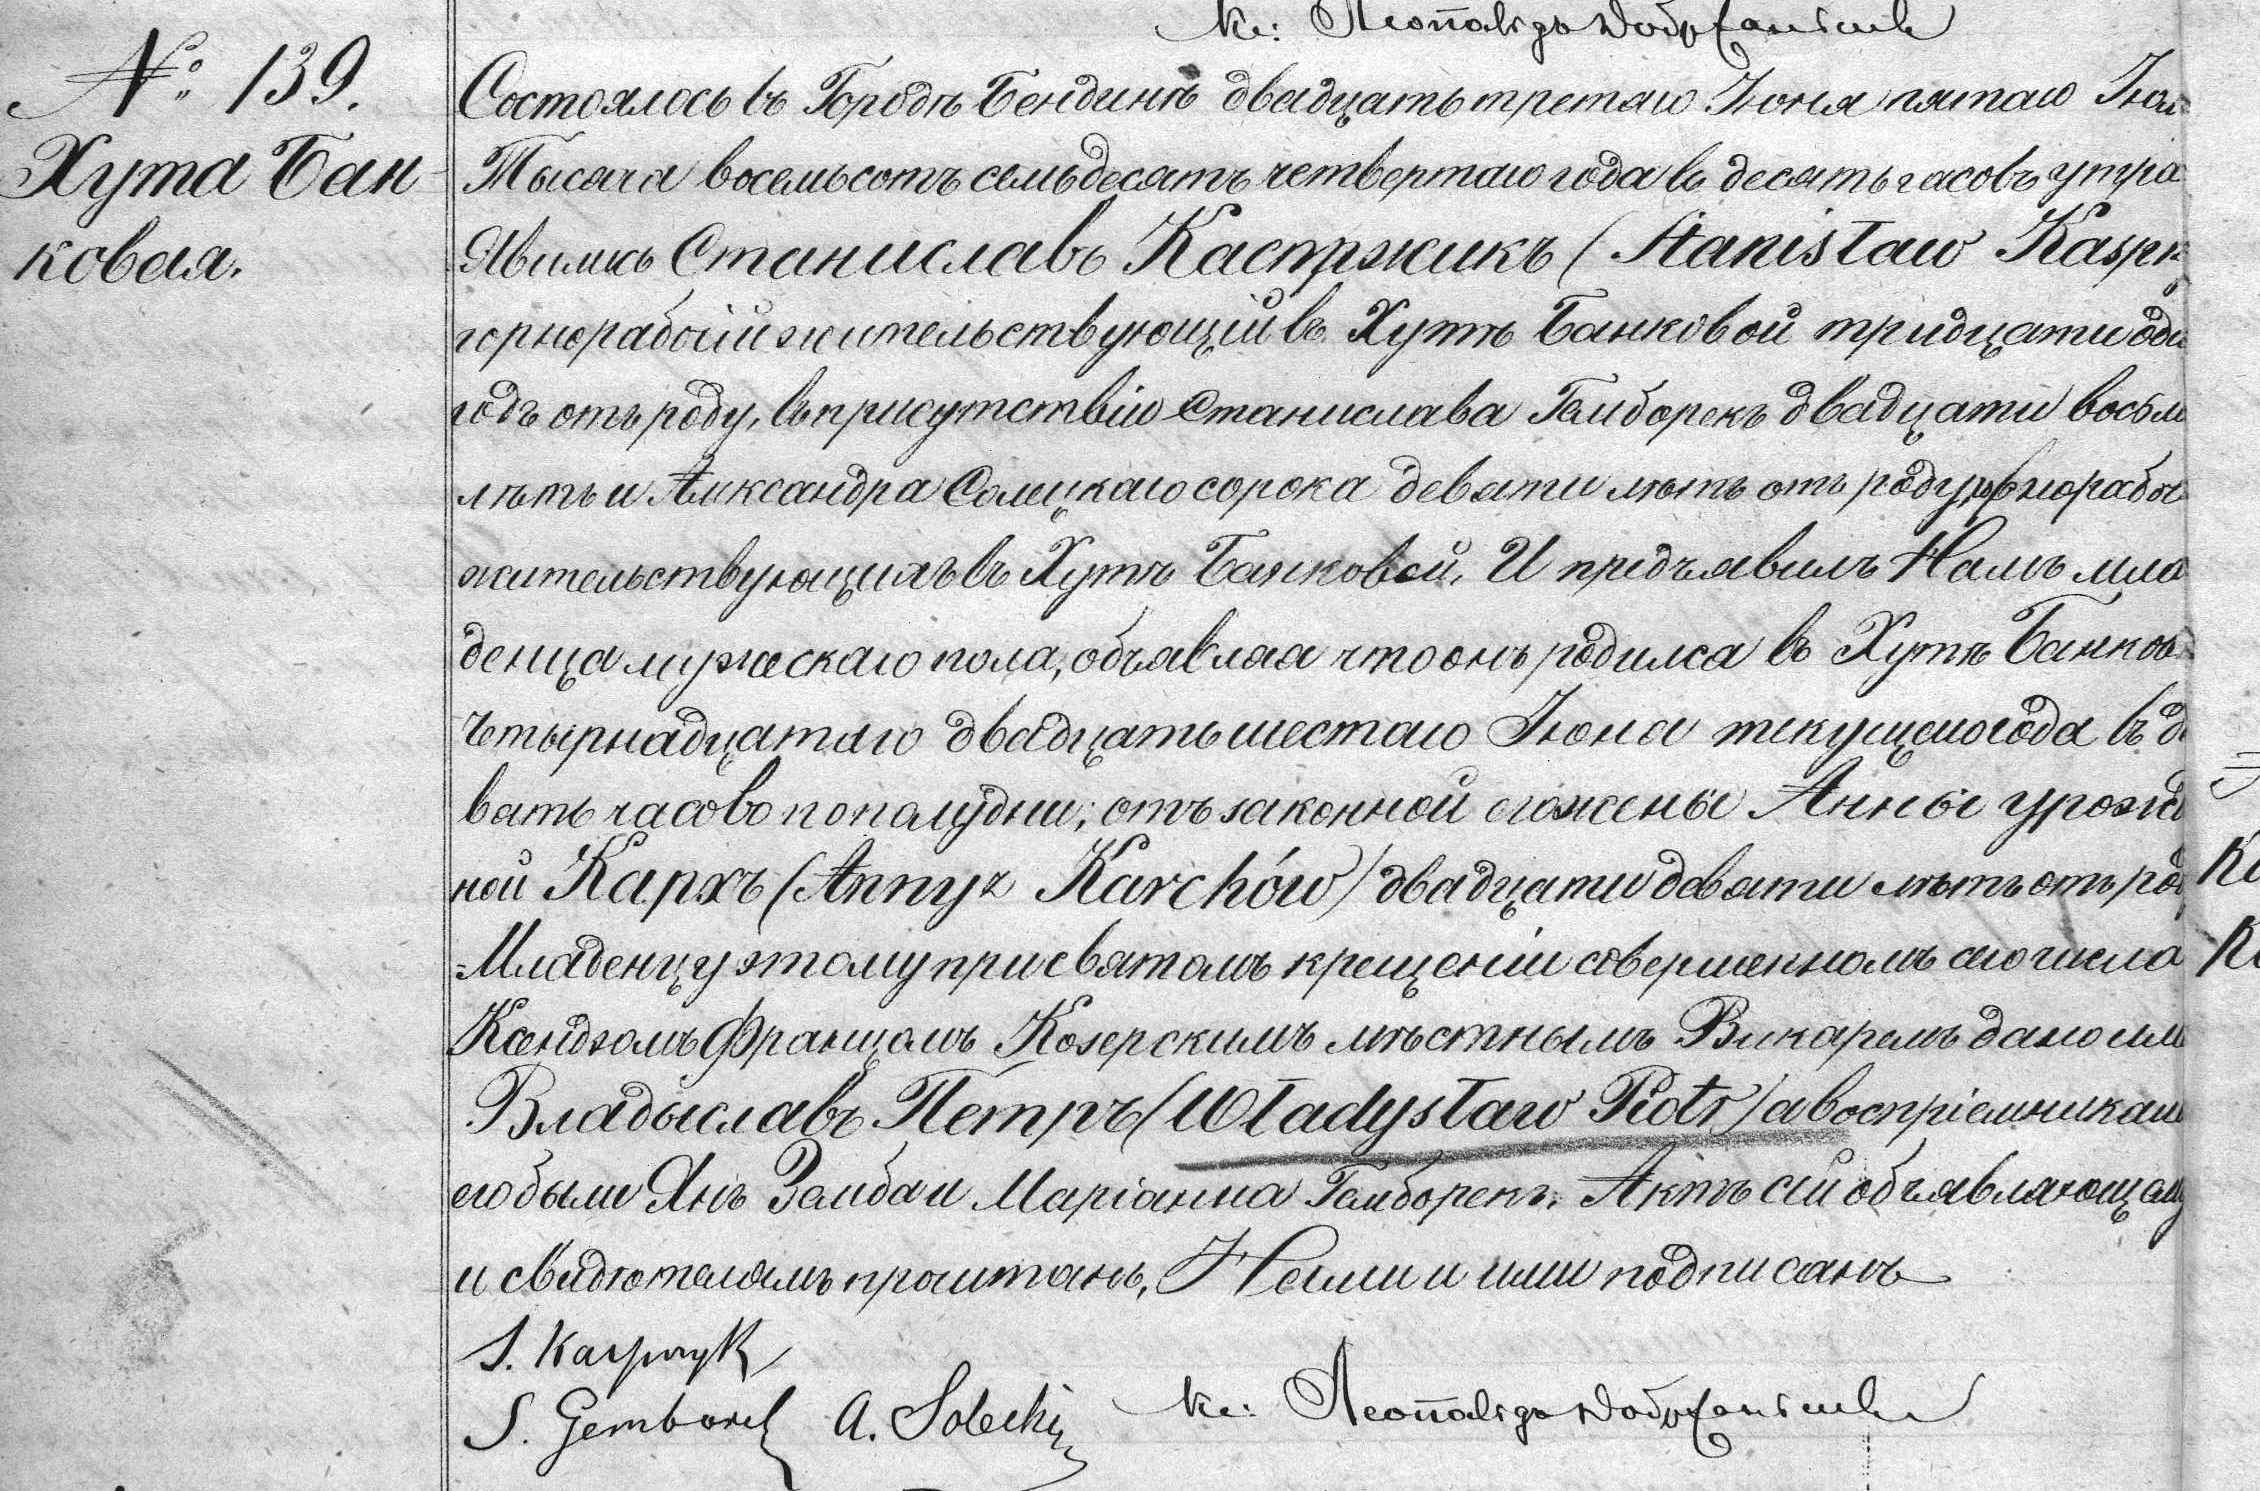 Кс: Леопольдъ
№ 139.
Хута Бан
ковая.
Состоялось въ Городѣ Бендинѣ двадцать третяго Іюня пятаго Іюл
Тысяча восемьсотъ семьдесятъ четвертаго года въ десять часовъ утра
Явились Станиславъ Каспржикъ (Stanisław Kaspr
горнорабочій жительствующій въ Хутѣ Банковой тридцати оди
годъ отъ роду, въ присутствіи Станислава Гемборекъ двадцати восьм
лѣтъ и Александра Солецкаго сорока девяти лѣтъ отъ роду горнорабоч
жительствующихъ въ Хутѣ Банковой, И предъявилъ Намъ мла
денца мужескаго пола, объявляя что онъ родился въ Хутѣ Банков
четырнадцатаго двадцать шестаго Іюня текущаго года въ де
вять часовъ пополудни; отъ законной его жены Анны урожд
ной Кархъ (Anny z Karchów) двадцати девяти лѣтъ отъ род
Младенцу этому при святомъ крещеніи совершенномъ сего числа
Ксендзомъ Францомъ Козерскимъ мѣстнымъ Викаремъ дано им
Владыславъ Петръ (Władysław Piotr) а воспріемниками
его были Янъ Замба и Маріанна Гемборекъ. Актъ сей объявляющему
и свидѣтелямъ прочитанъ, Нами и ими подписанъ
S. Kasprzyk
S. Gemborek A. Solecki Кс: Леопольдъ